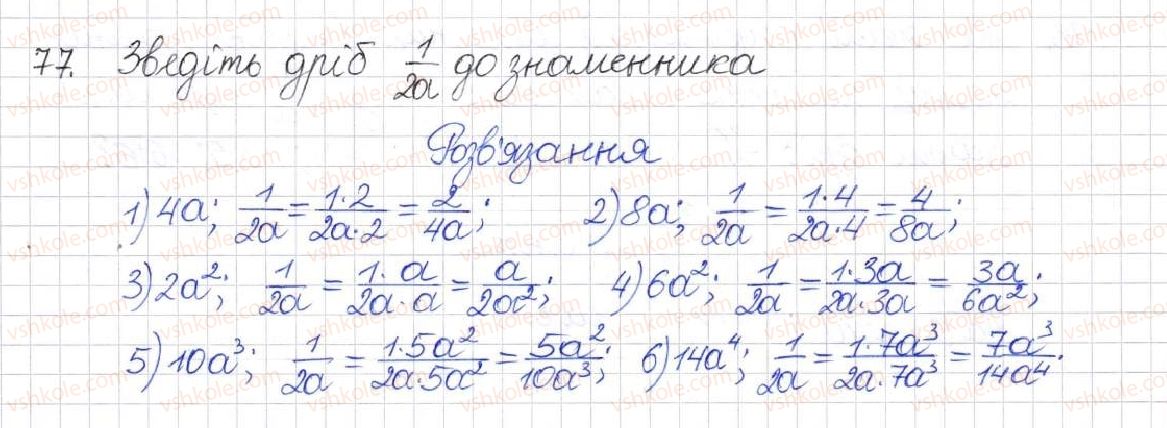 77. Зведіть дріб 1/2a до знаменника
Розв'язання
1) 4a; 1/2a = 1·2/2a·2 = 2/4a; 2) 8a; 1/2a = 1·4/2a·4 = 4/8a;
3) 2a²; 1/2a = 1·a/2a·a = a/2a²; 4) 6a²; 1/2a = 1·3a/2a·3a = 3a/6a²;
5) 10a³; 1/2a = 1·5a²/2a·5a² = 5a²/10a³; 6) 14a⁴; 1/2a = 1·7a³/2a·7a³ = 7a³/14a⁴.
vshkole.com